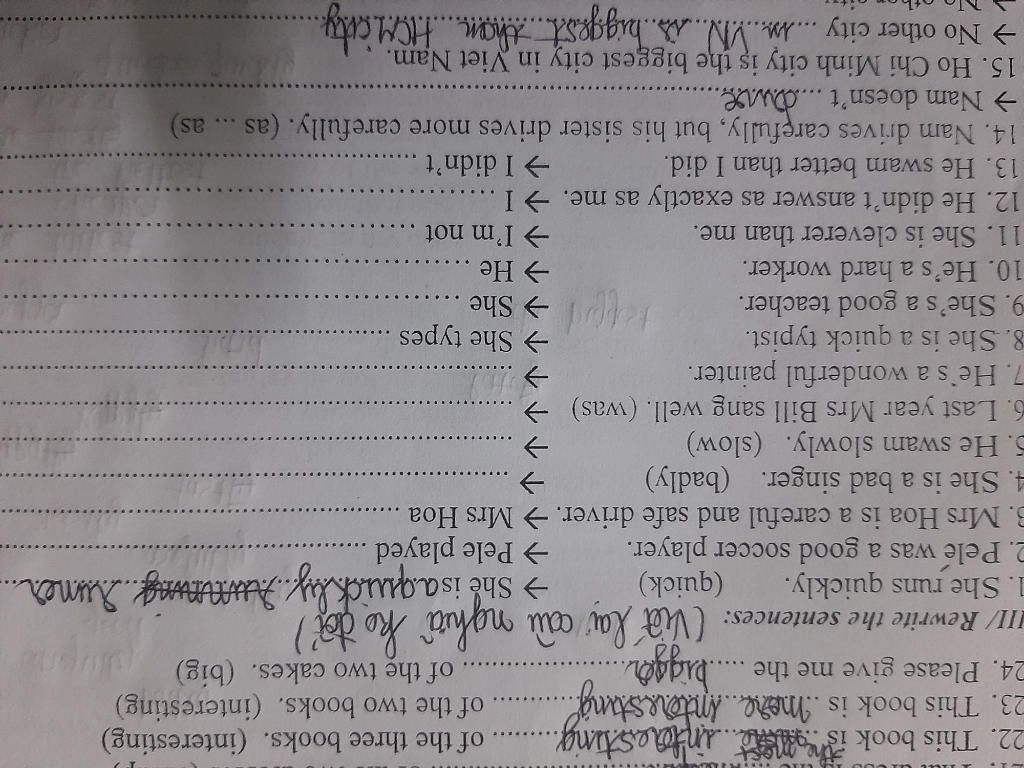 22. This book is ..the most interesting.......... of the three books. (interesting)
23. This book is ..more interesting.......... of the two books. (interesting)
24. Please give me the ......bigger.................. of the two cakes. (big)
III/ Rewrite the sentences: (Viết lại câu nghĩa ko đổi)
1. She runs quickly. (quick) → She is a quickly running runner
2. Pelé was a good soccer player. → Pele played ..............................
3. Mrs Hoa is a careful and safe driver. → Mrs Hoa ..............................
4. She is a bad singer. (badly) → ..............................
5. He swam slowly. (slow) → ..............................
6. Last year Mrs Bill sang well. (was) → ..............................
7. He's a wonderful painter. → ..............................
8. She is a quick typist. → She types ..............................
9. She's a good teacher. → She ..............................
10. He's a hard worker. → He ..............................
11. She is cleverer than me. → I'm not ..............................
12. He didn't answer as exactly as me. → I ..............................
13. He swam better than I did. → I didn't ..............................
14. Nam drives carefully, but his sister drives more carefully. (as ... as)
→ Nam doesn't ....drive..............................
15. Ho Chi Minh city is the biggest city in Viet Nam.
→ No other city ....in VN is biggest than HCM city
→ No other city